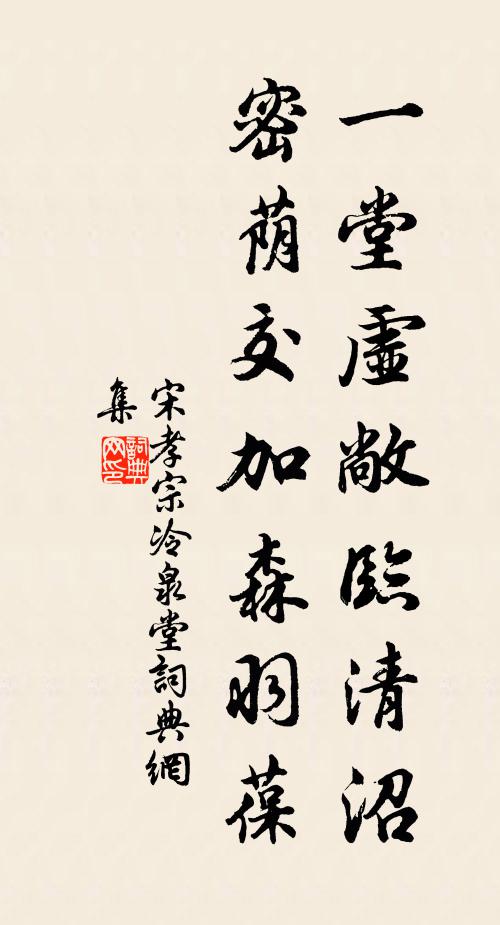 一堂虛敞臨清沼
密蔭交加森羽葆
宋孝宗冷泉堂詞典網
集
詞典網印